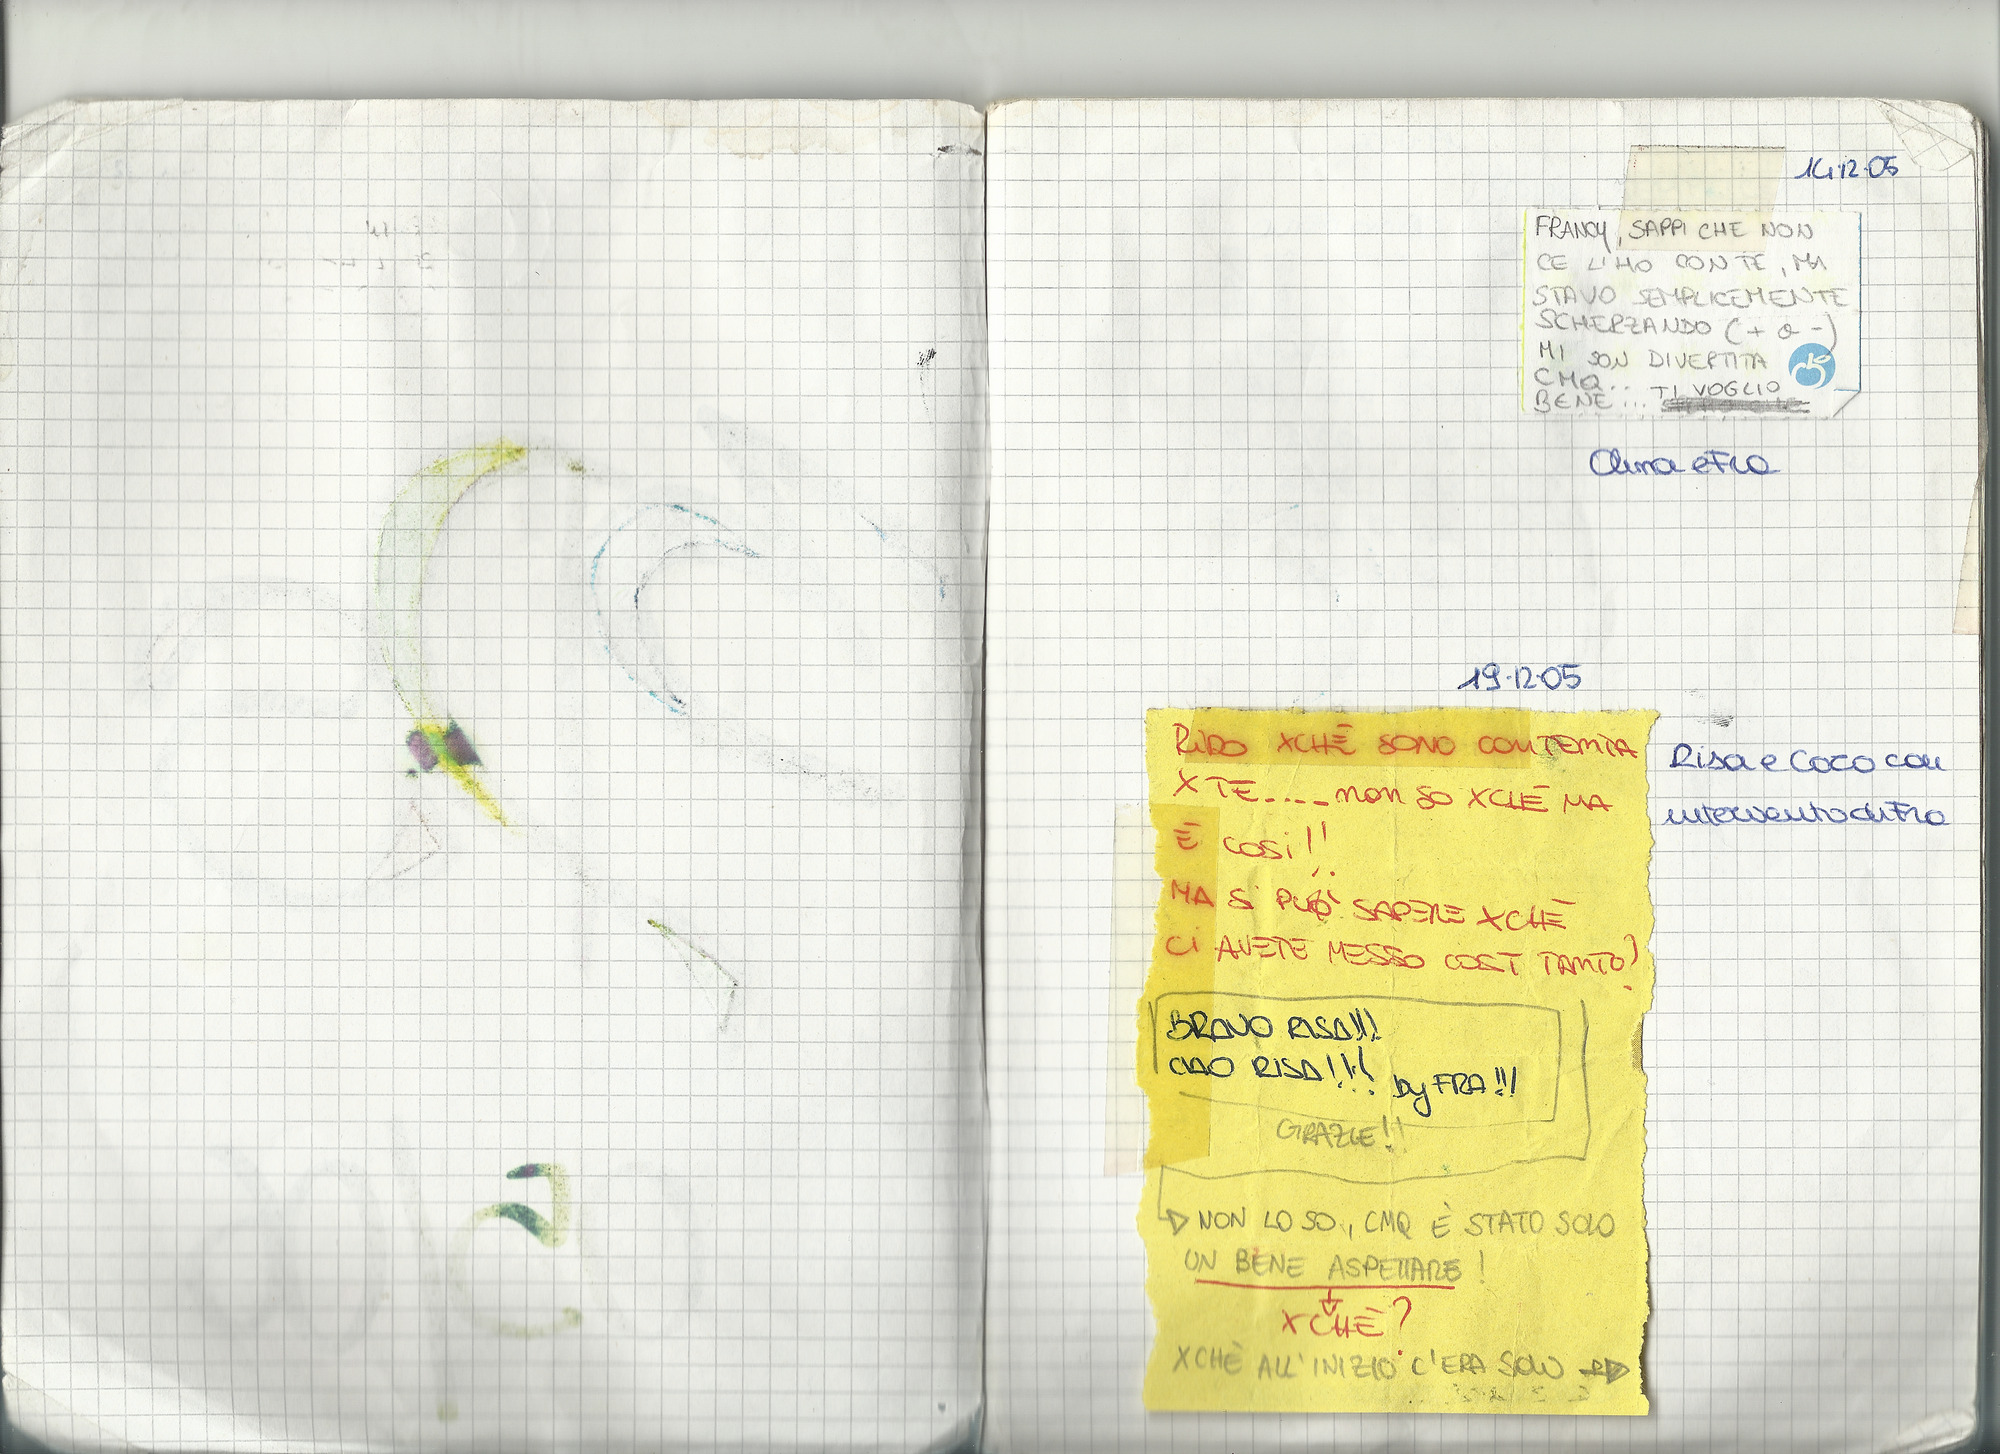 14.12.05
FRANCY, SAPPI CHE NON
CE L'HO CON TE, MA
STAVO SEMPLICEMENTE
SCHERZANDO (+ o -)
MI SON DIVERTITA
CMQ... TI VOGLIO
BENE...
e Fra
19.12.05
RIDO XCHÈ SONO CONTENTA
X TE.... non SO XCHÈ MA
È COSÌ!!
MA SI PUÒ SAPERE XCHÈ
CI AVETE MESSO COSÌ TANTO?
Risa e Coco con
intervento di Fra
BRAVO RISA!!!
CIAO RISA!!! by FRA!!!
GRAZIE!!
NON LO SO, CMQ È STATO SOLO
UN BENE ASPETTARE!
XCHÈ?
XCHÈ ALL'INIZIO C'ERA SOLO